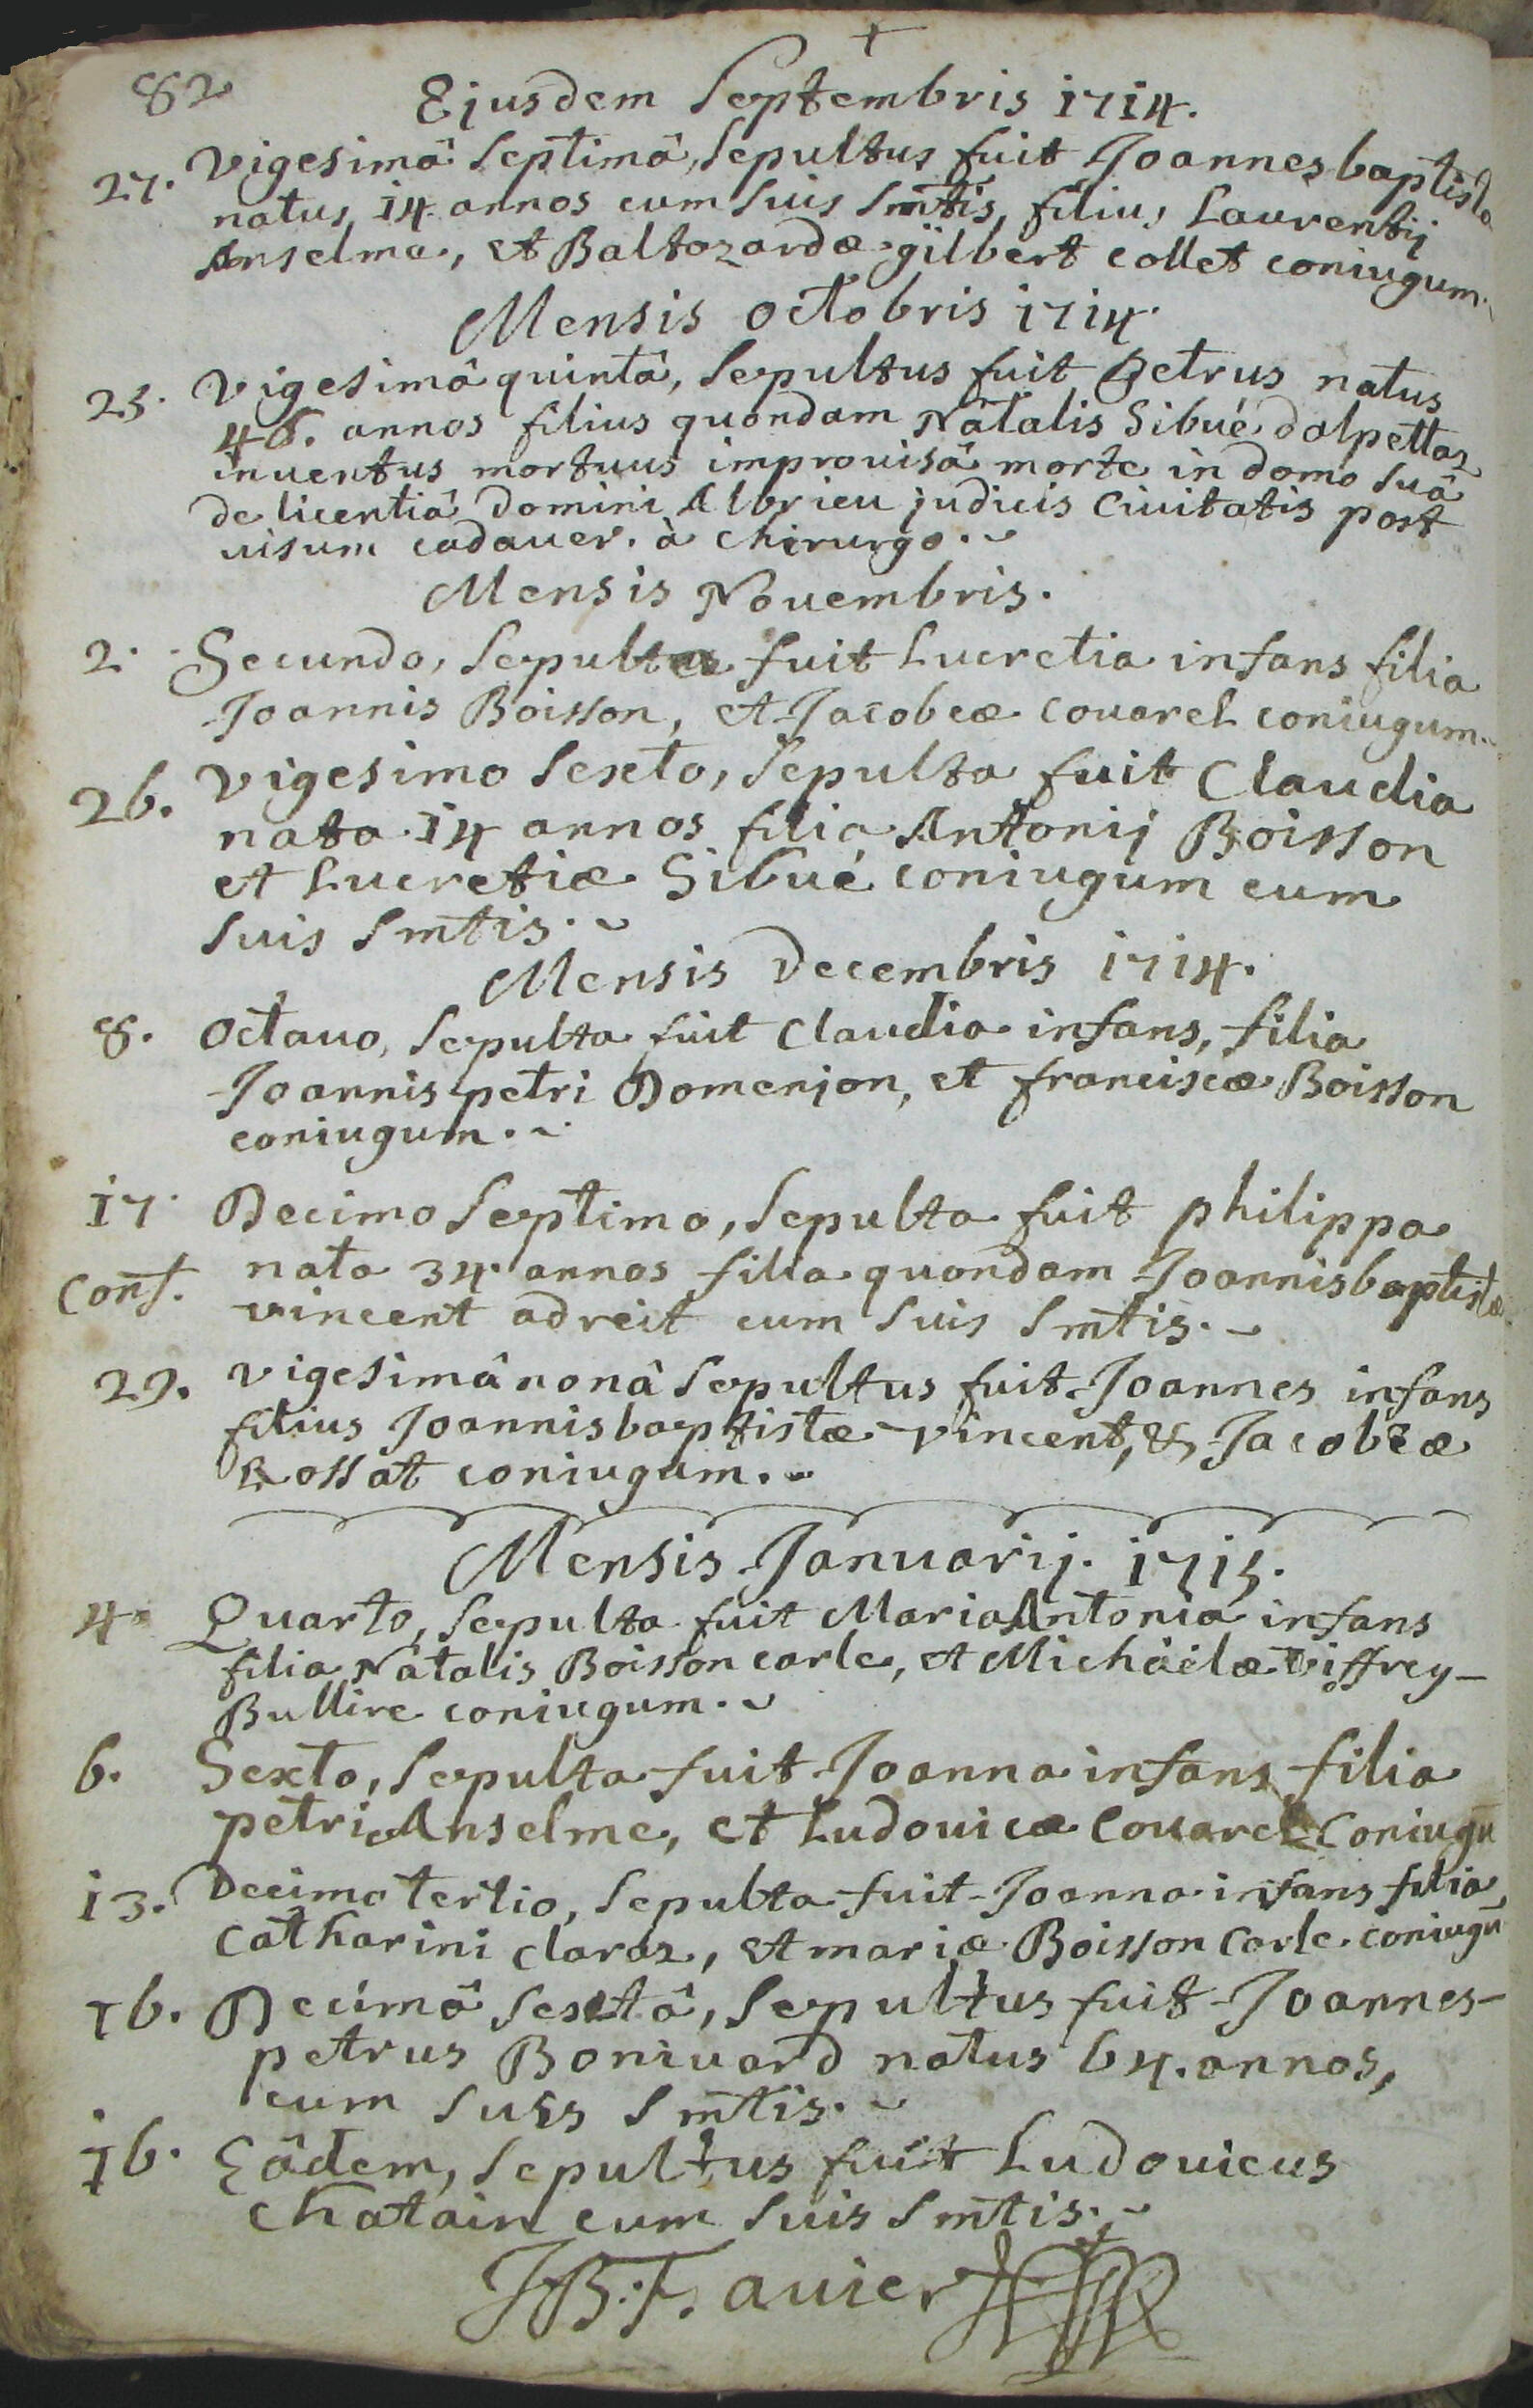 +
82
Ejusdem Septembris 1714.
27. Vigesimâ Septimâ, Sepultus fuit Joannesbaptista
natus 14 annos cum suis Smtis, filius Laurentij
Anselme, et Baltazardæ gilbert collet coniugum.
Mensis octobris 1714.
25. Vigesimâ quintâ, Sepultus fuit Petrus natus
46. annos filius quondam Natalis Sibué dalpettaz
inuentus mortuus improuisâ morte in domo suâ
de licentiâ Domini Albrieu judicis Ciuitatis post
uisum cadauer. à chirurgo.
Mensis Nouembris.
2. Secundo, Sepulta fuit Lucretia infans filia
Joannis Boisson, et Jacobeæ couarel coniugum.
26. Vigesimo Sexto, Sepulta fuit Claudia
nata 14 annos filia Antonij Boisson
et Lucretiæ Sibué coniugum cum
suis Smtis.
Mensis Decembris 1714.
8. Octauo, Sepulta fuit Claudia infans, filia
Joannispetri Domenjon, et franciscæ Boisson
coniugum.
17. Decimo Septimo, Sepulta fuit philippa
nata 34 annos filia quondam Joannisbaptistæ
Conf. vincent adreit cum suis Smtis.
29. vigesimâ nonâ Sepultus fuit Joannes infans
filius Joannisbaptistæ vincent, & Jacobeæ
Rossat coniugum.
Mensis Januarij. 1715.
4. Quarto, Sepulta fuit MariaAntonia infans
filia Natalis Boisson carle, et Michäelæ Tiffrey-
Bullire coniugum.
6. Sexto, Sepulta fuit Joanna infans filia
petri Anselme, et Ludouicæ Couarel Coniugū
13. Decimo tertio, Sepulta fuit Joanna infans filia
Catharini claraz, et mariæ Boisson Carle coniugū
16. Decimâ sextâ, Sepultus fuit Joannes-
petrus Boniuard natus 64. annos,
cum suis Smtis.
16. Eâdem, Sepultus fuit Ludouicus
chatain cum suis Smtis.
JB. Fauier